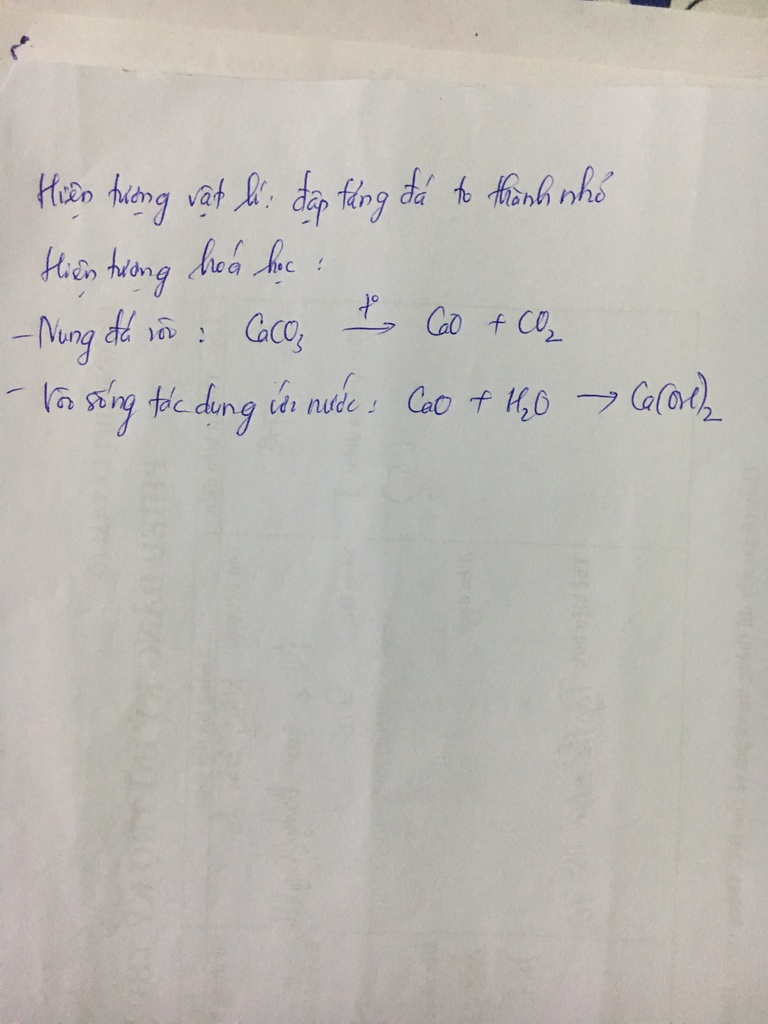 Hiện tượng vật lí: đập tảng đá to thành nhỏ
Hiện tượng hoá học:
- Nung đá vôi: CaCO₃ →(t°) CaO + CO₂
- Vôi sống tác dụng với nước: CaO + H₂O → Ca(OH)₂